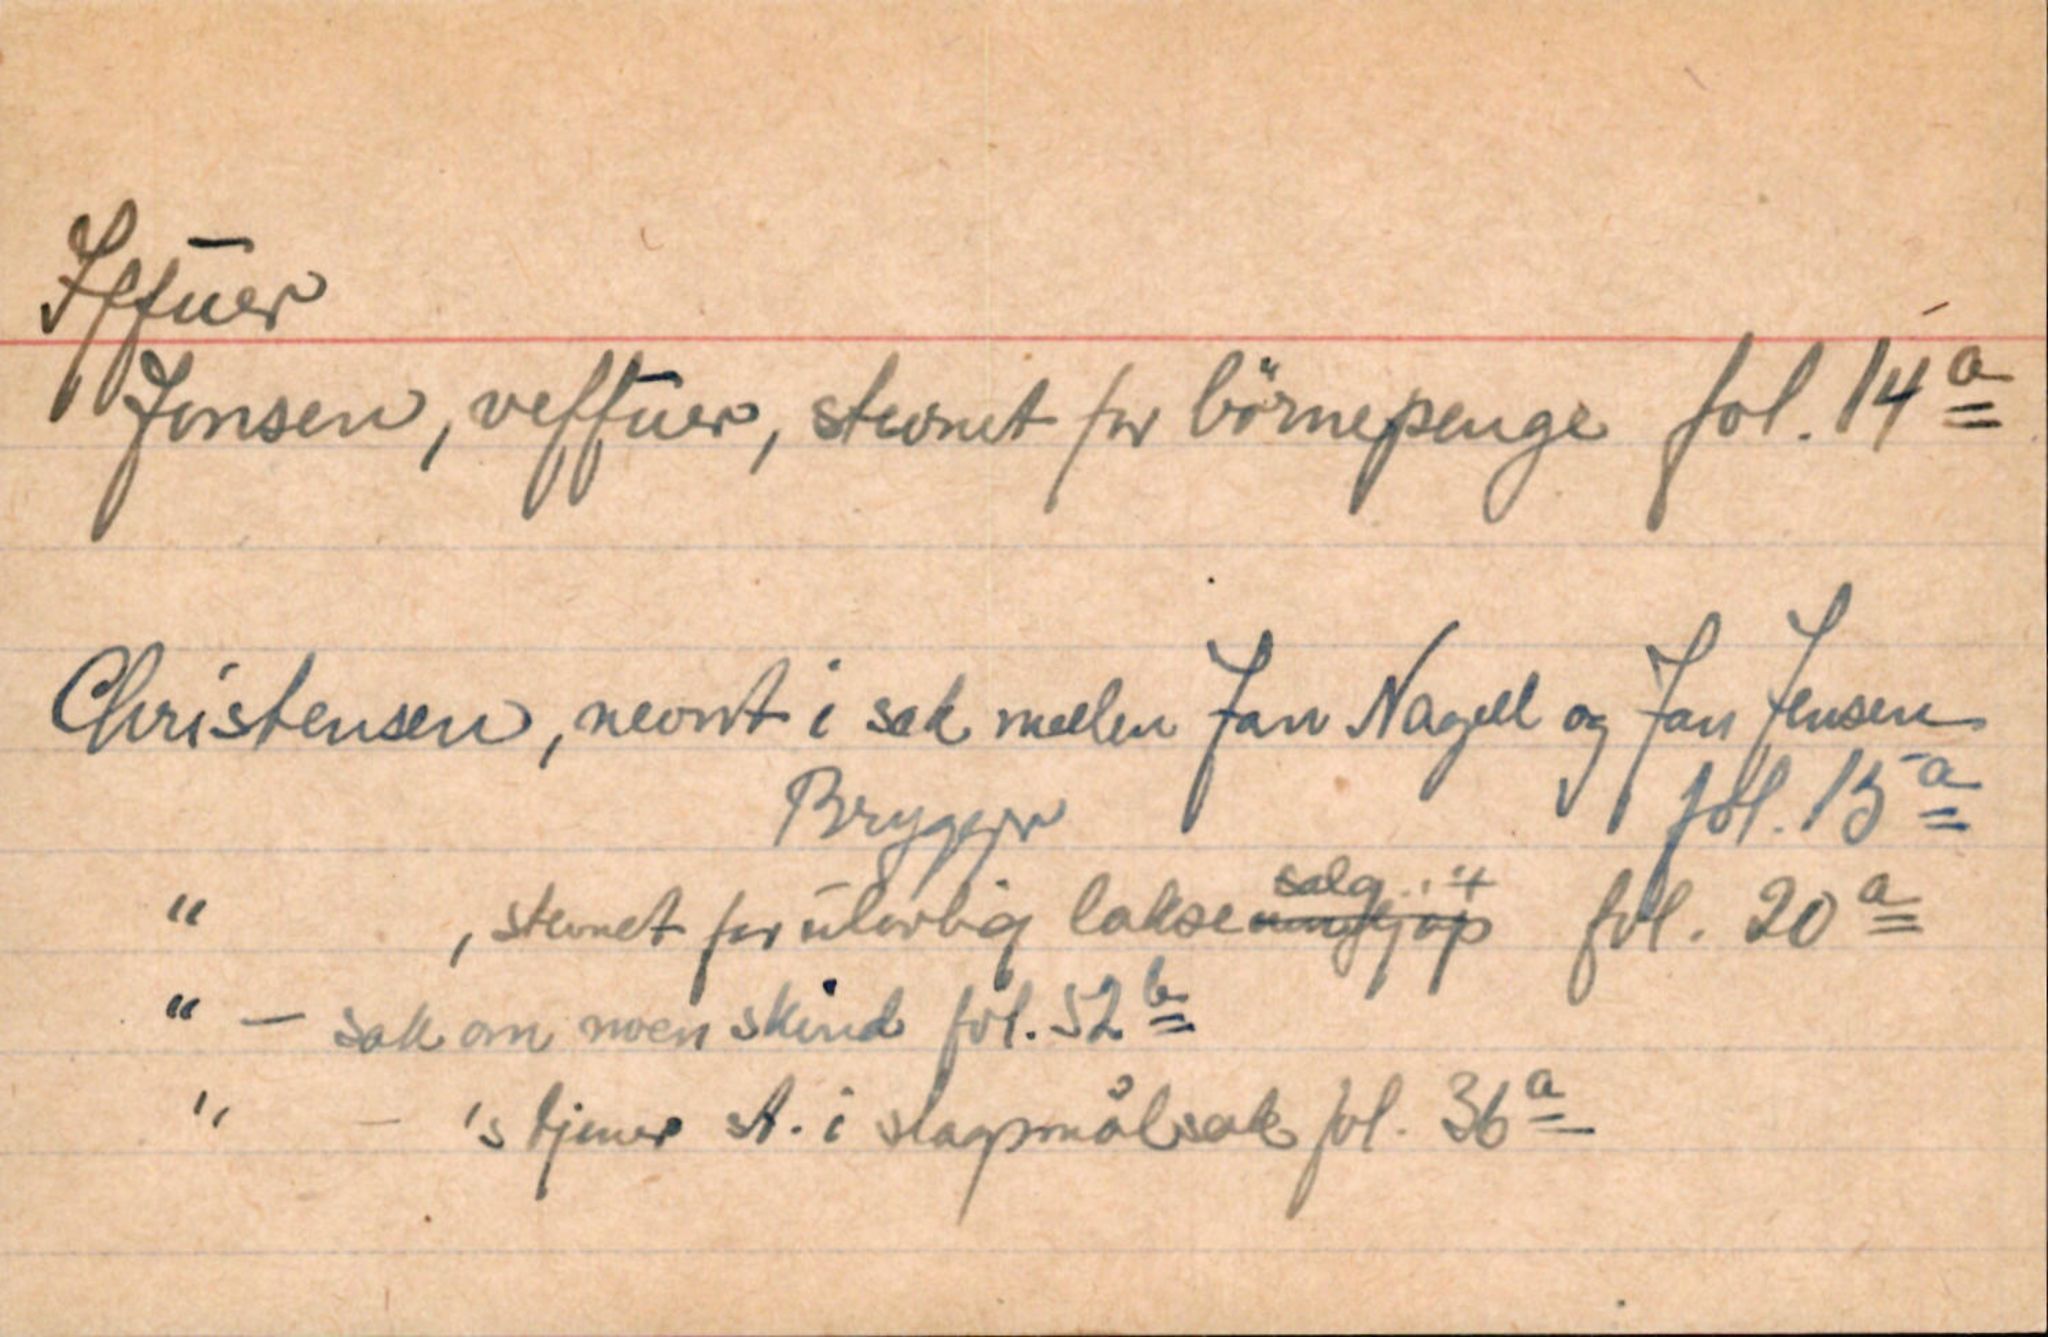 Iffuer
Jonsen, veffuer, stevnet for börnepenge fol. 14a
Christensen, nevnt i sak mellem Jan Nagell og Jan Jensen
Brygger fol. 15a
" , stevnet for ulovlig lakse salg fol. 20a
" — sak om noen skind fol. 52b
" — 's tjener st. i slagsmålsak fol. 36a